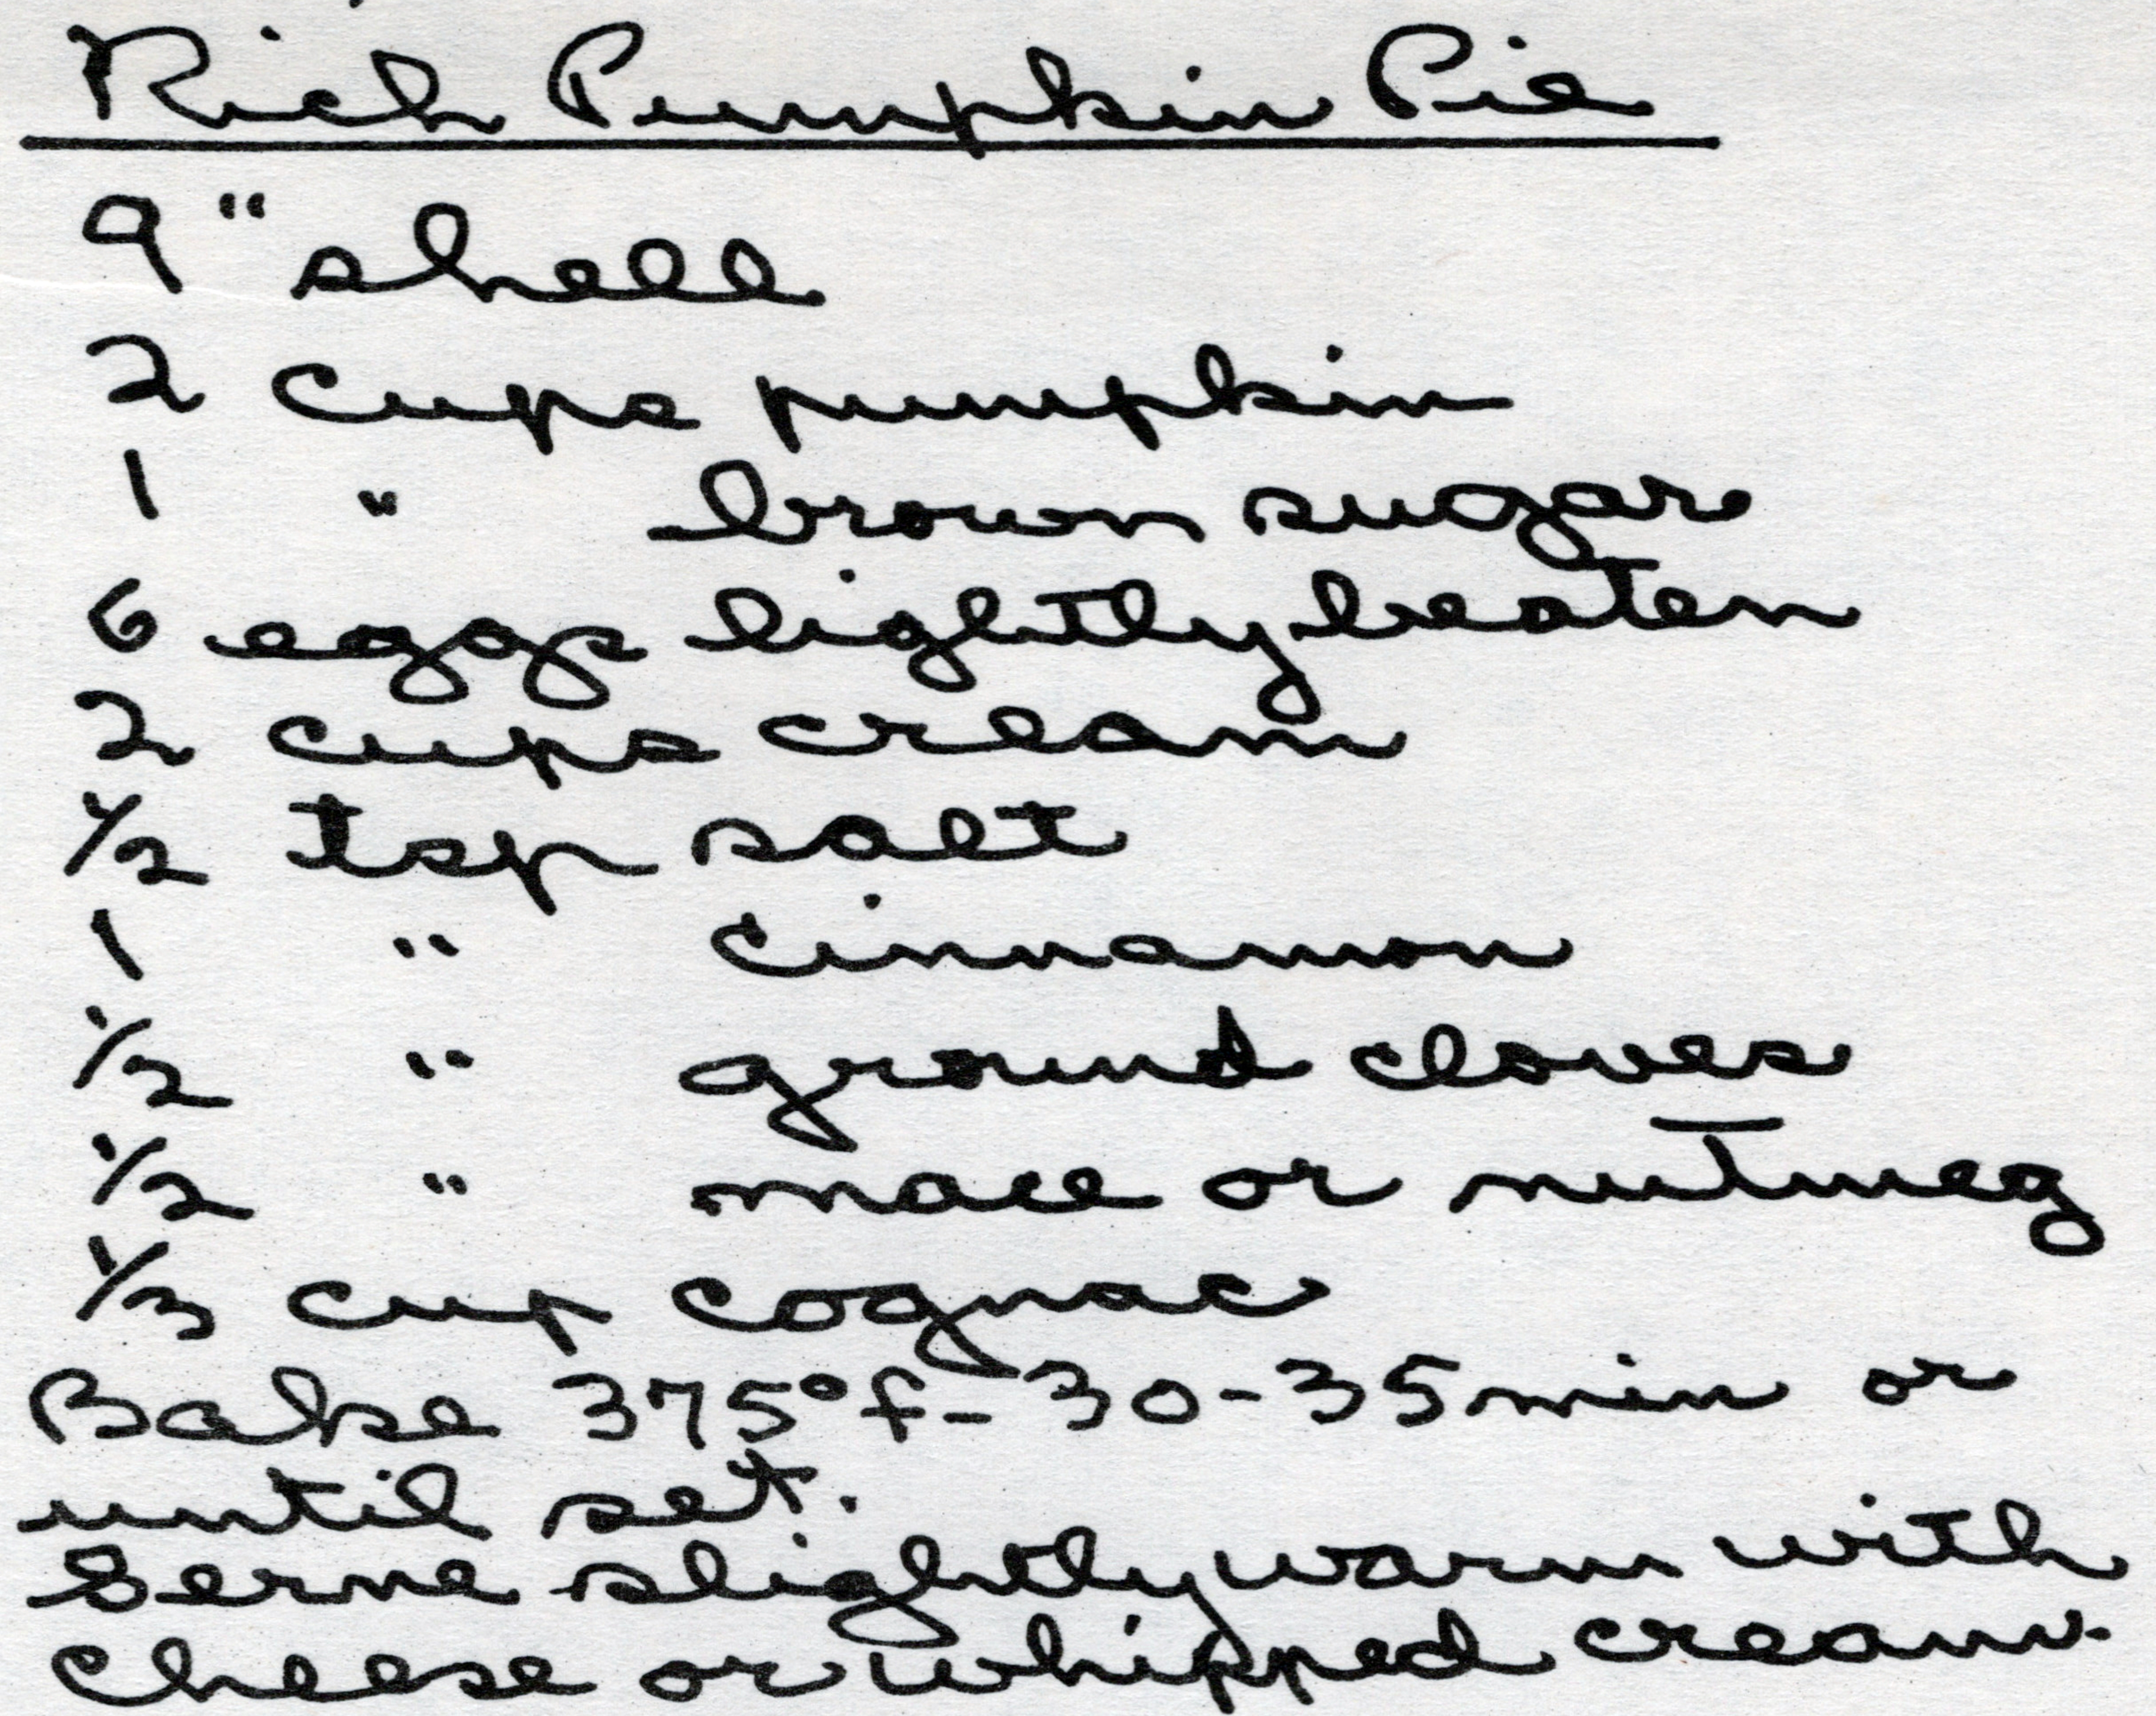 Rich Pumpkin Pie
9" shell
2 cups pumpkin
1 " brown sugar
6 eggs lightly beaten
2 cups cream
1/2 tsp salt
1 " cinnamon
1/2 " ground cloves
1/2 " mace or nutmeg
1/3 cup cognac
Bake 375°f - 30-35 min or
until set.
Serve slightly warm with
cheese or whipped cream.